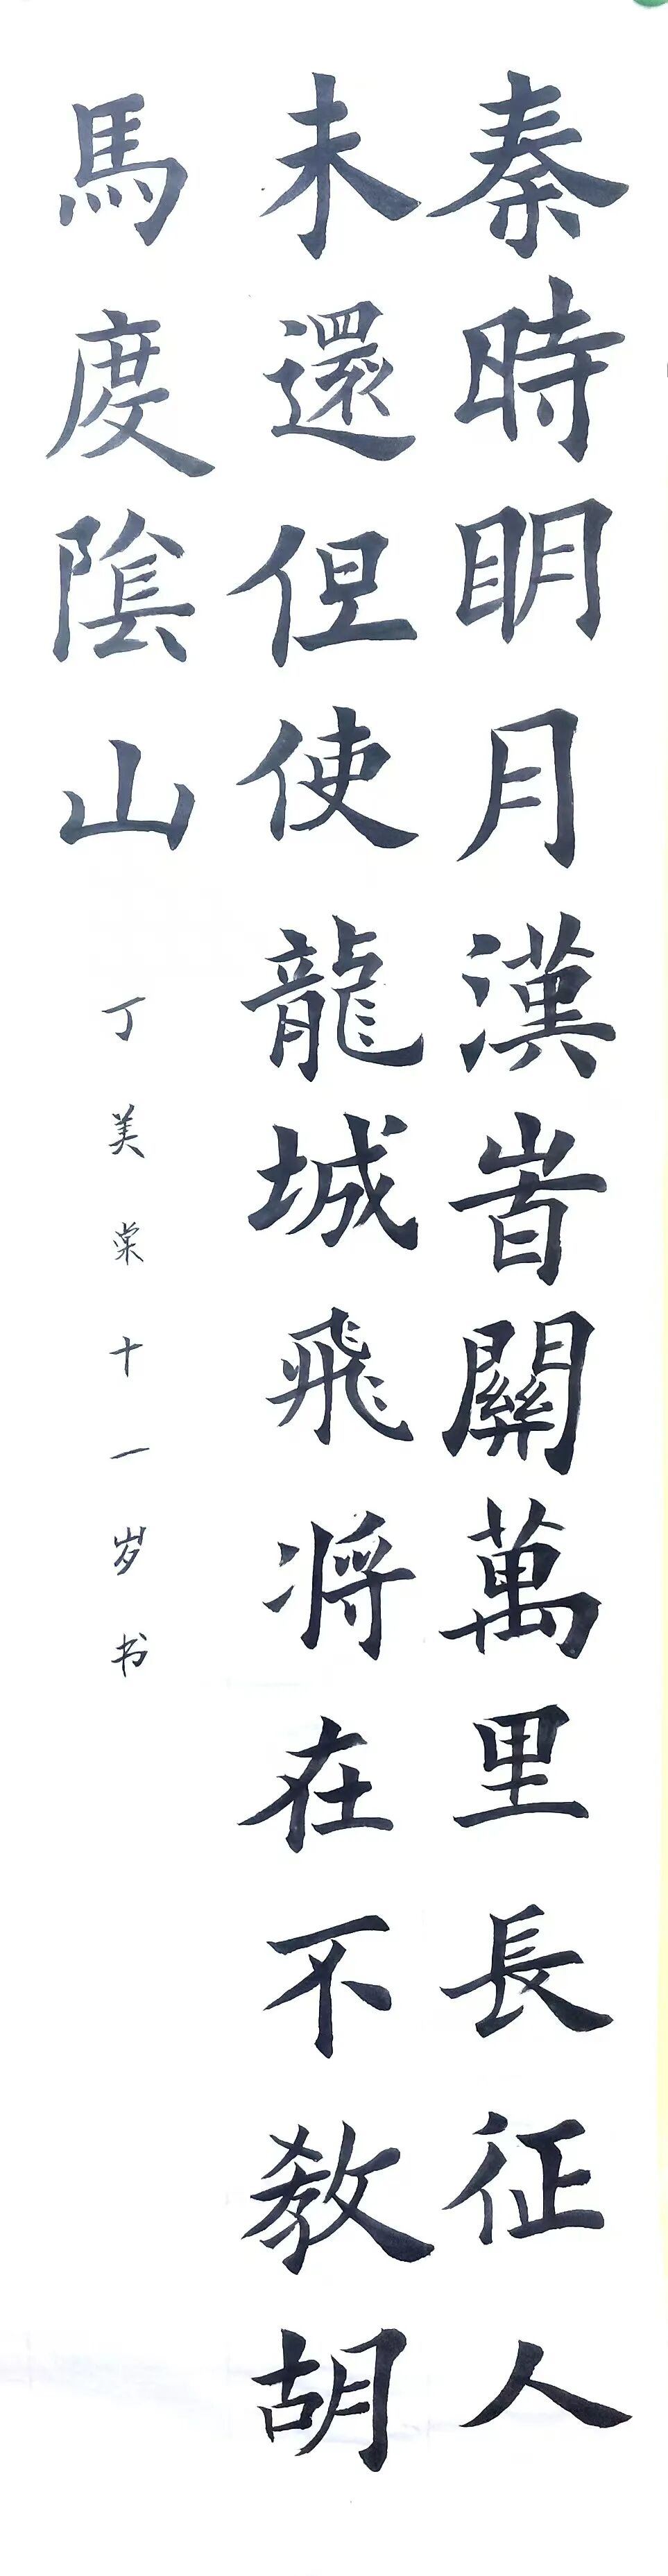 秦時眀月漢旹關萬里長征人
未還但使龍城飛将在不教胡
馬度隂山
丁美棠十一岁书